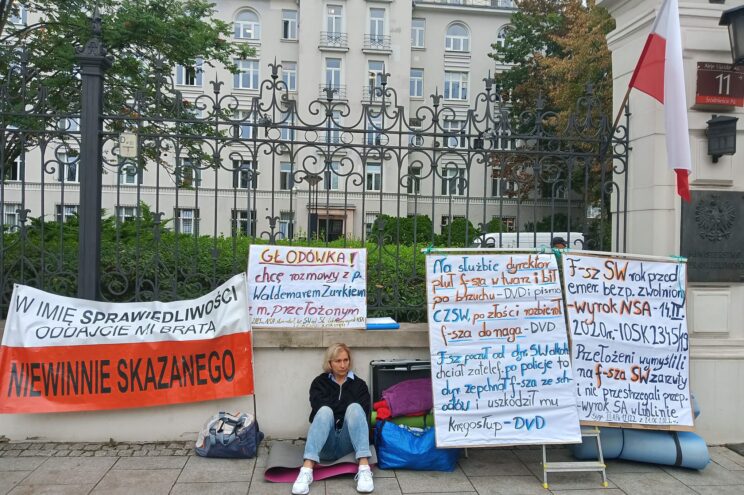 W IMIĘ SPRAWIEDLIWOŚCI
ODDAJCIE MI BRATA
NIEWINNIE SKAZANEGO
GŁODÓWKA!
chcę rozmowy z p.
Waldemarem Żurkiem
z m. przełożonym
Na służbie dyrektor
pluł f-sza w twarz i bił
po brzuchu - DVD i pisma
CZSW, po złości rozbierał
f-sza do naga - DVD
F-sz poczuł od dyr. SW alkohol
chciał zatelef. po policję to
dyr. zepchnął f-sza ze sch-
odów i uszkodził mu
kręgosłup - DVD
F-sz SW rok przed
emer. bezp. zwolniony
- wyrok NSA - 14.
2020r. - IOSK 2345/19
Przełożeni wymyślili
na f-sza SW zarzuty
i nie przestrzegali przep.
- wyrok SA w Lublinie
Aleje
11
Śródmieście